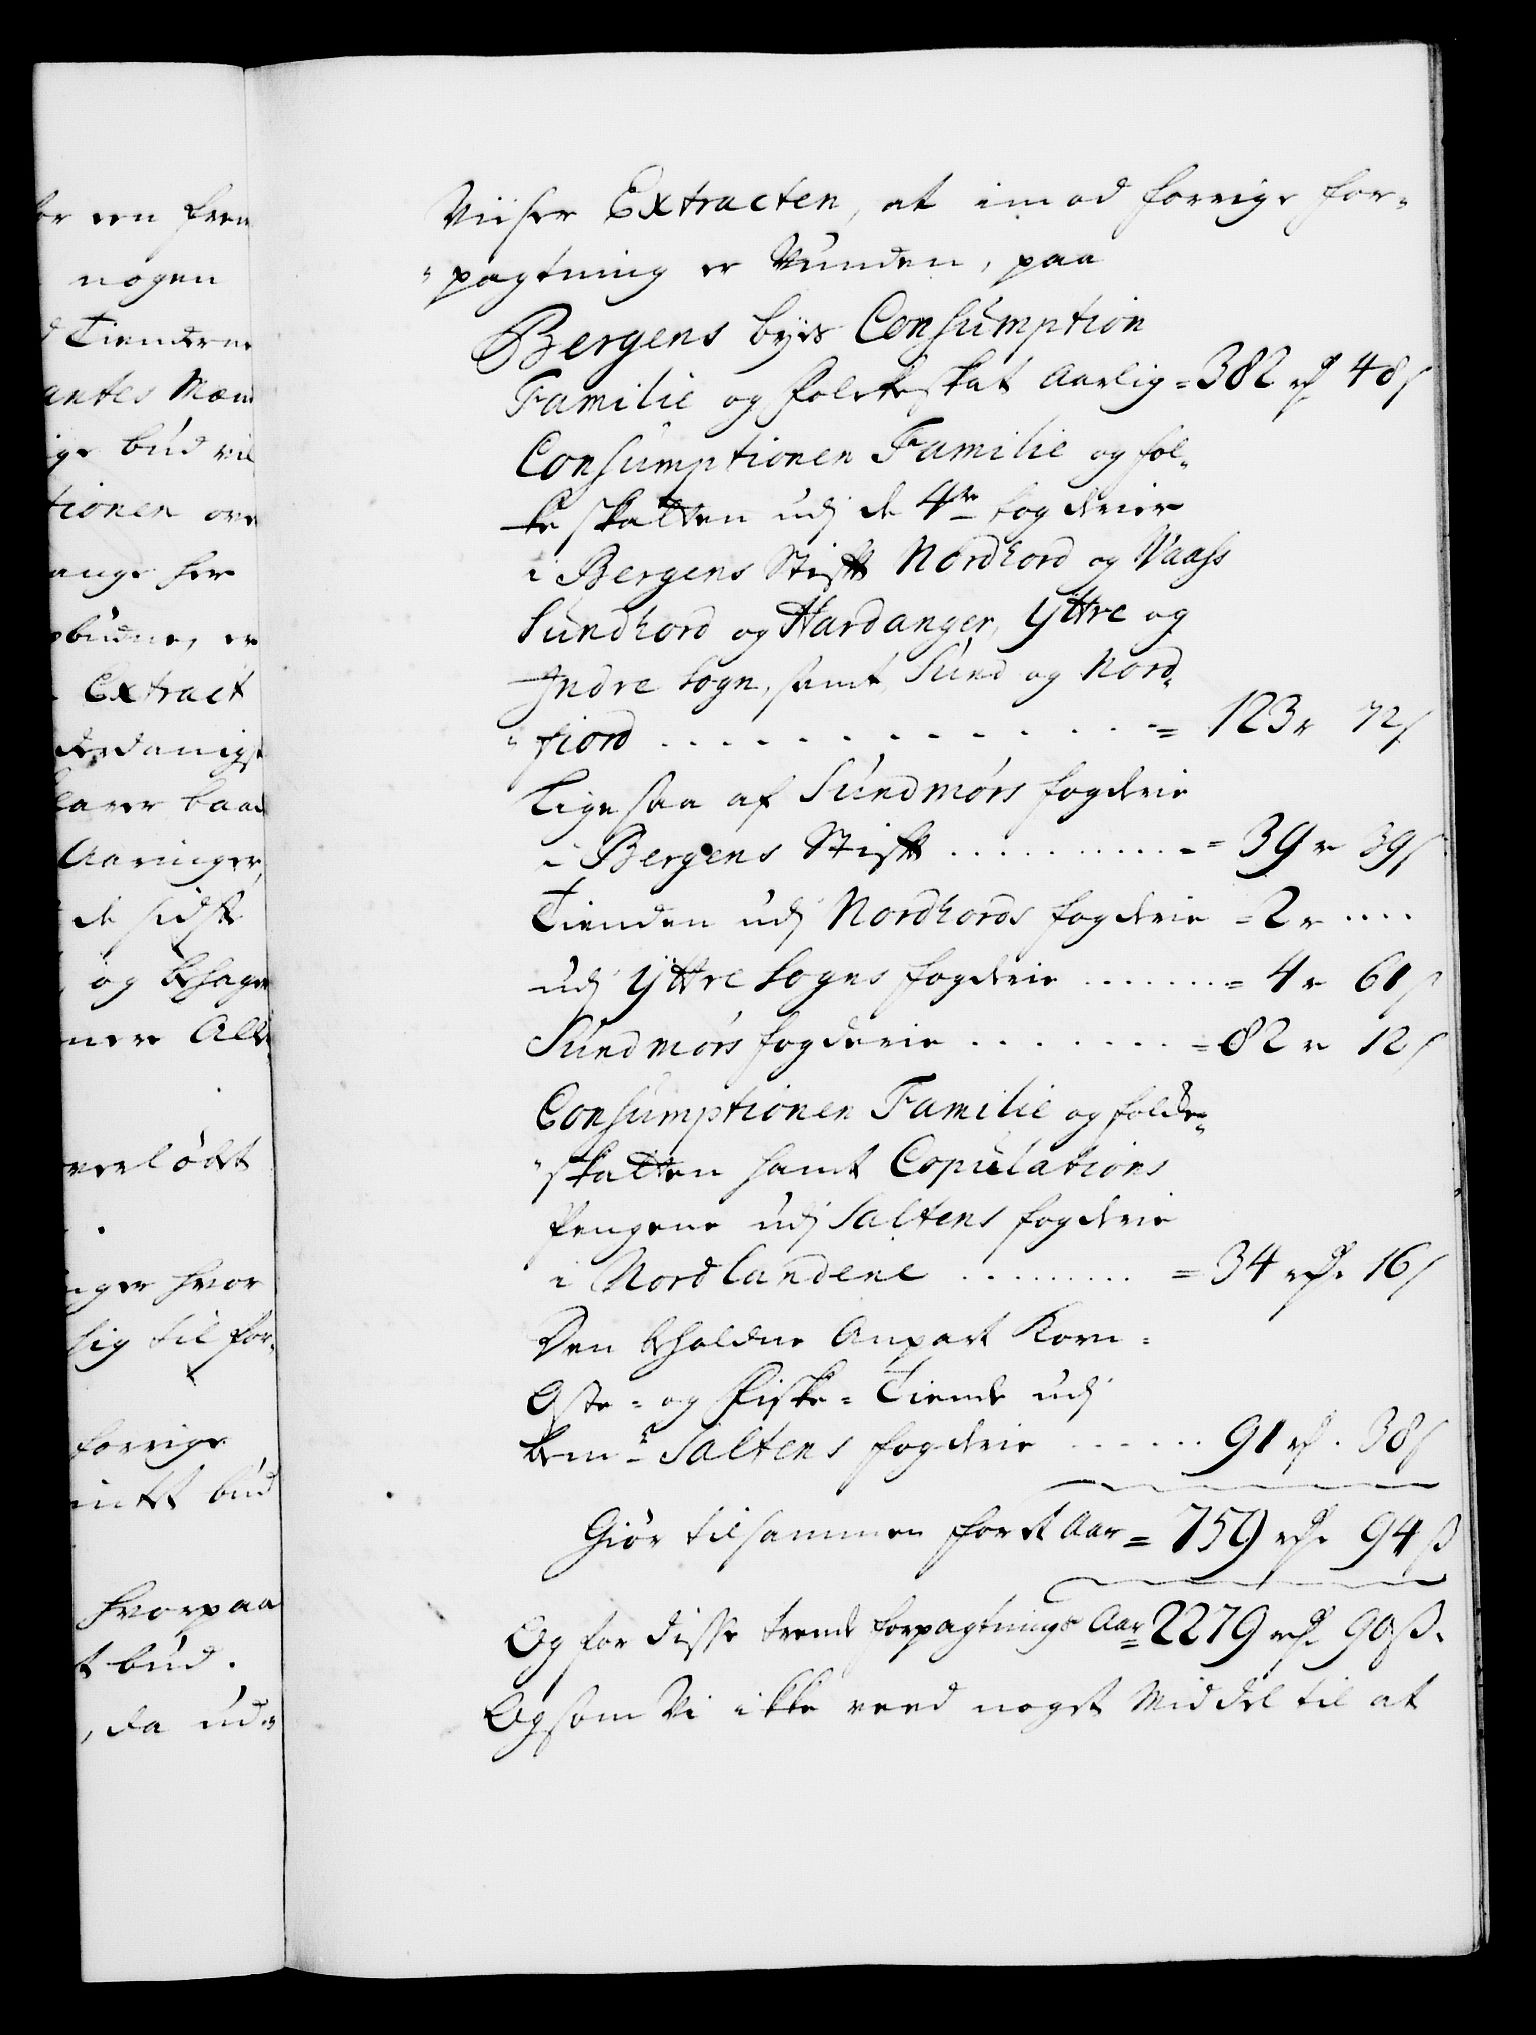 or een frem
nogen
d Tienderne
antes Mæni
ige bud vil
tionen ove
ange her
pbudne, er
Extract
derdanigst
larer baad
Aaringer,
de sidste
og behager
nere Alle
verlódt
nger hvor
sig til for-
forrige
intet bud
hvorpaa
t bud.
, da ud-
Viiser Extracten, at imod forrige for-
pagtning er Vunden, paa
Bergens byes Consumption
Familie og Folckeskat Aarlig = 382 rd 48 s
Consumptionen Familie og fol-
keskatten udj de 4re fogderier
i Bergens Stift Nordhord og Vaass
Sundhord og Hardanger, Yttre og
Indre Sogn, samt Sund og Nord-
fiord . . . . . . . . . . . = 123 r 72 s
Ligesaa af Sundmórs fogderie
i Bergens Stift . . . . . . . . . = 39 r 39 s
Tienden udj Nordhords fogderie = 2 r ....
udj Yttre Sogns fogderie ....... = 4 r 61 s
Sundmórs fogderie . . . . . . . = 82 r 12 s
Consumptionen Familie og folcke-
skatten samt Copulations
Pengene udj Saltens fogderie
i Nordlandene ......... = 34 rd 16 s
Den beholdne Anpart Korn-
Oste- og Fiske-Tiende udj
bem.te Saltens fogderie ...... 91 rd. 38 s
Giór tilsammen for et Aar = 759 rd. 94 s
Og for disse trende forpagtnings Aar = 2279 rd 90 s.
Og som Vi ikke veed noget Middel til at